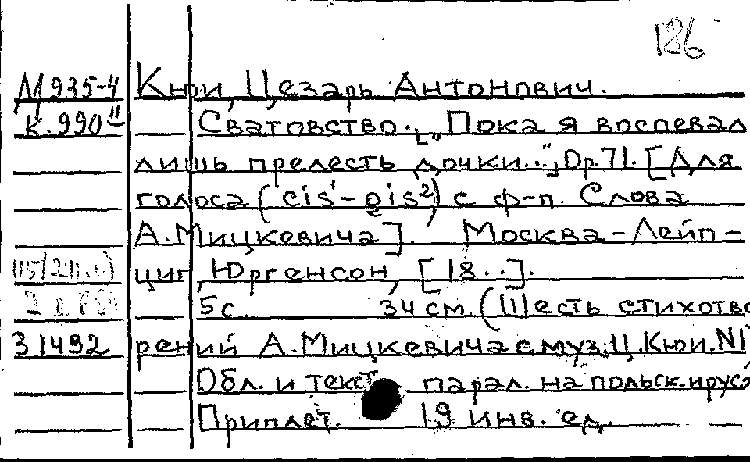 126
М 935-4 Кюи, Цезарь Антонович.
К.990 II Сватовство. [„Пока я воспевал
лишь прелесть дочки..."] Op. 71. [Для
голоса (cis¹-gis²) с ф-п. Слова
А. Мицкевича]. Москва-Лейп-
циг, Юргенсон, [18..].
5 с. 34 см. (Шесть стихотво
31492 рений А. Мицкевича с муз. Ц. Кюи. N1
Обл. и текст парал. на польск. и русс
Приплет. 19 инв. ед.